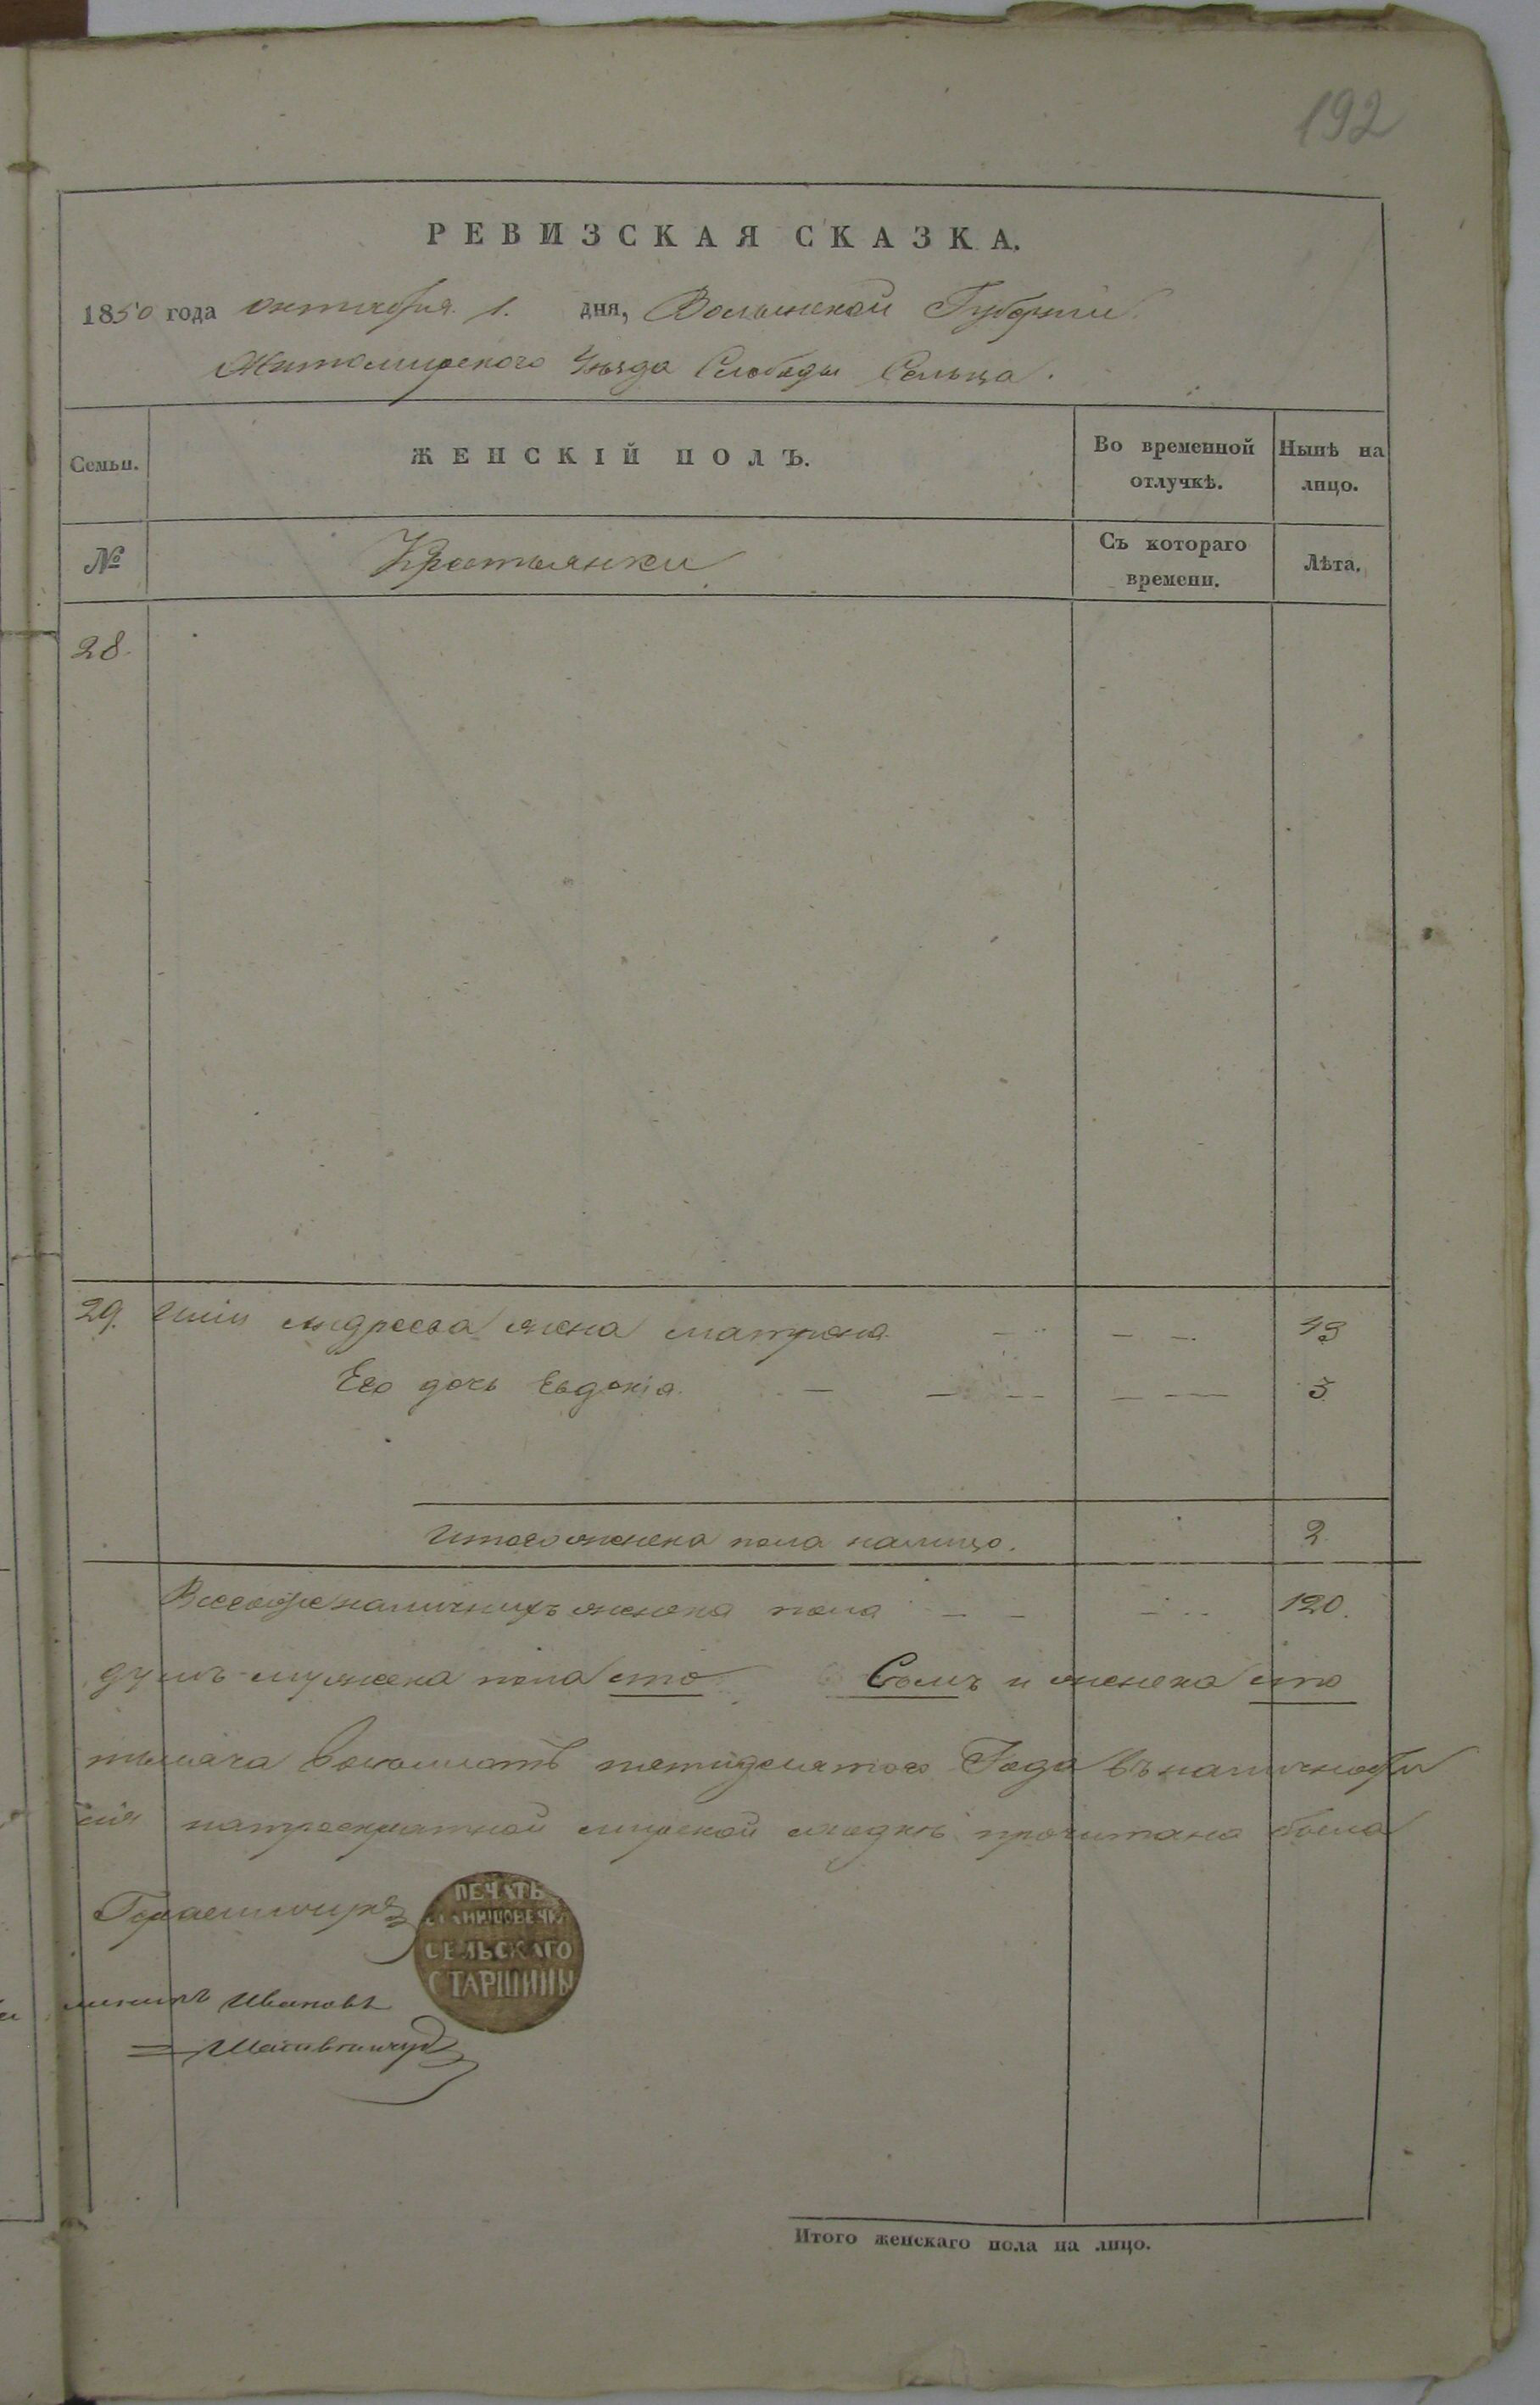 192
РЕВИЗСКАЯ СКАЗКА.
1850 года октября 1. дня, Волынской Губерніи
Житомирского Уезда Слободы Сельца.
Семьи.
ЖЕНСКІЙ ПОЛЪ.
Во временной отлучкѣ.
Нынѣ на лицо.
№
Крестьянки
Съ котораго времени.
Лѣта.
28.
29. Андреева жена Матрона 43
Его дочь Евдокія. 3
Итого женска пола налицо. 2
наличныхъ женска пола 120.
душъ мужеска пола сто Семъ и женска сто
тысяча восемсотъ пятидесятого Года въ
мирской сходкѣ прочитана была
ПЕЧАТЬ
СЕЛЬСКАГО
СТАРШИНЫ
Ивановъ
Итого женскаго пола на лицо.